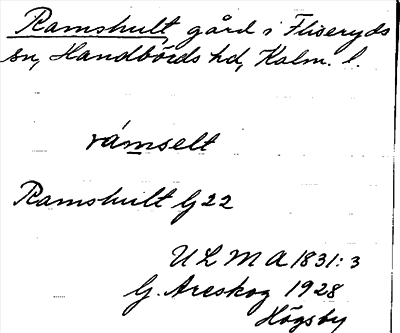 Ramshult, gård i Fliseryds
sn, Handbörds hd, Kalm. l.
rámselt
Ramshult G22
ULMA 1831:3
G. Areskog 1928
Högsby